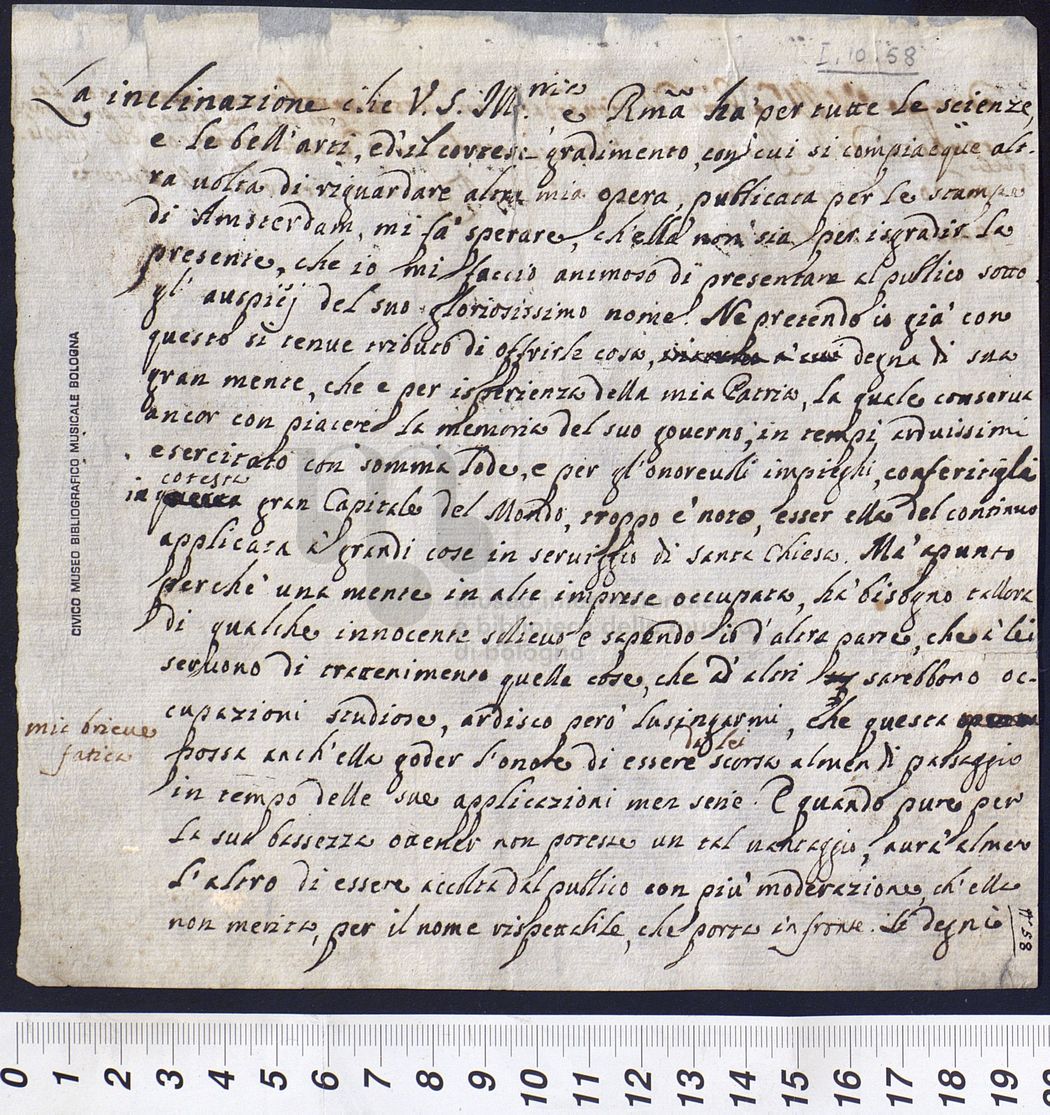 I. 10. 58
La inclinazione che V. S. Ill.ma e Rmã ha' per tutte le scienze,
e le bell'arti, ed il cortese gradimento, con cui si compiacque al-
tra volta di riguardare altra mia opera, publicata per le stampe
di Amsterdam, mi fà sperare, ch'ella non sia per isgradir la
presente, che io mi faccio animoso di presentare al publico sotto
gl' auspiij del suo gloriosissimo nome. Ne pretendo io già con
questo sì tenue tributo di offrirle cosa, degna di sua
gran mente, che e per isperienza della mia Patria, la quale conserva
ancor con piacere la memoria del suo governo, in tempi arduissimi
esercitato con somma lode, e per gl'onorevoli impieghi, conferitigli
in cotesta gran Capitale del Mondo, troppo è noto, esser ella del continuo
applicata à grandi cose in serviggio di santa Chiesa. Mà apunto
perchè una mente in alte imprese occupata, hà bisogno tallora
di qualche innocente solievo e sapendo io d'altra parte, che à lei
servono di tratenimento quelle cose, che ad altri sarebbono oc-
cupazioni studiose, ardisco però lusingarmi, che questa
mia brieve
fatica
possa anch'ella goder l'onore di essere da lei scorsa almen di passaggio
in tempo delle sue applicazioni men serie. E quando pure per
la sua bassezza ottener non potesse un tal vantaggio, avrà almen
l'altro di essere accolta dal publico con più moderazione, ch'ella
non merita, per il nome rispettabile, che porta in fronte. Si degni
58
CIVICO MUSEO BIBLIOGRAFICO MUSICALE BOLOGNA
museo internazionale
e biblioteca della musica
di bologna
0 1 2 3 4 5 6 7 8 9 10 11 12 13 14 15 16 17 18 19 20